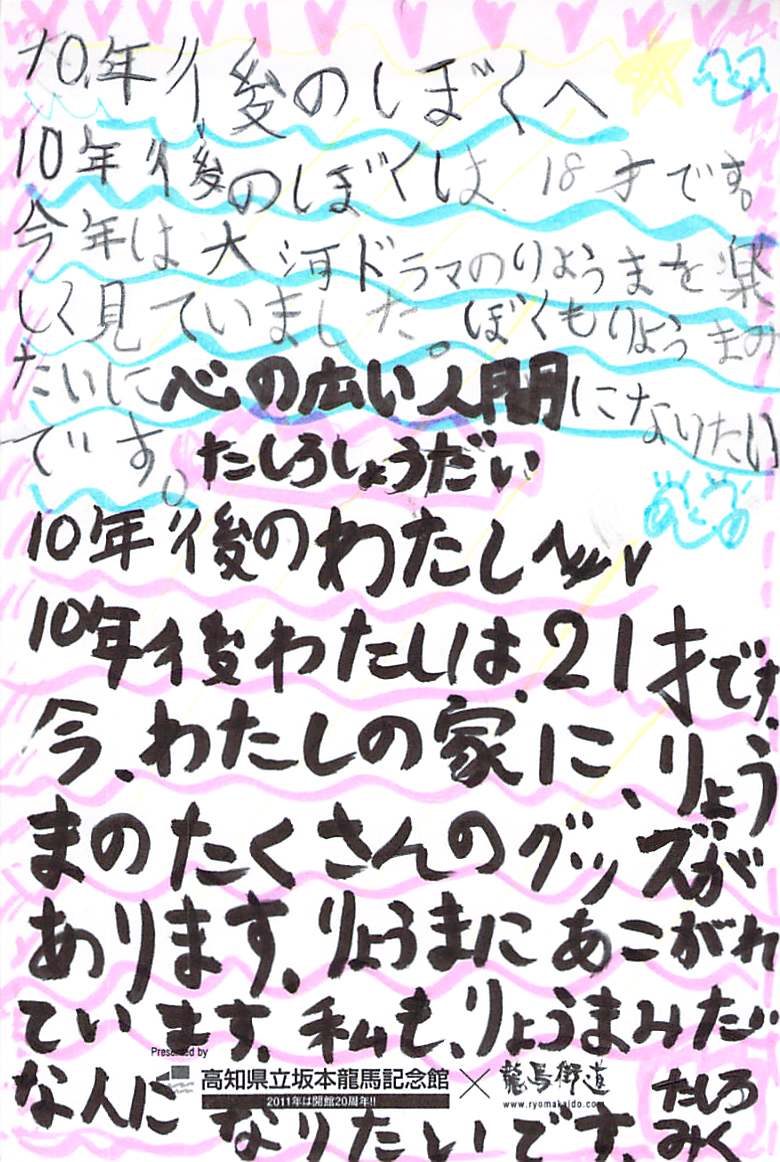 10年後のぼくへ
10年後のぼくは、18才です。
今年は大河ドラマのりょうまを楽
しく見ていました。ぼくもりょうまの
たいに心の広い人間になりたい
です。たしろしょうだい
10年後のわたしへ
10年後わたしは21才です。
今、わたしの家に、りょう
まのたくさんのグッズが
あります。りょうまにあこがれ
ています。私も、りょうまみたい
な人になりたいです。
たしろ
みく
Presented by
高知県立坂本龍馬記念館×龍馬街道
2011年は開館20周年!!
www.ryomakaido.com